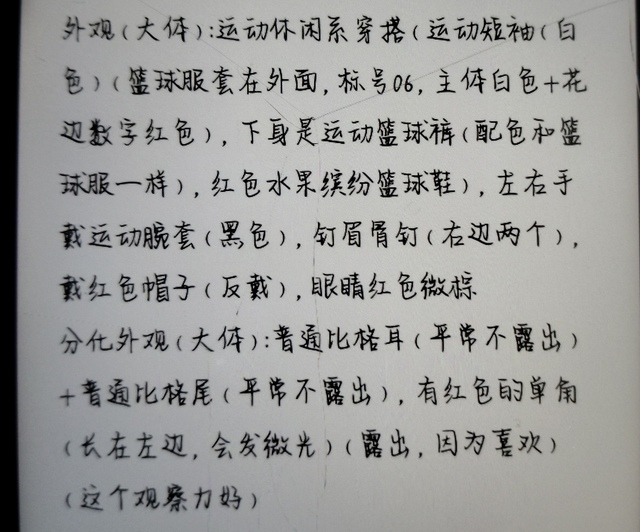 外观(大体):运动休闲系穿搭(运动短袖(白
色)(篮球服套在外面,标号06,主体白色+花
边数字红色),下身是运动篮球裤(配色和篮
球服一样),红色水果缤纷篮球鞋),左右手
戴运动腕套(黑色),钉眉骨钉(右边两个),
戴红色帽子(反戴),眼睛红色微棕
分化外观(大体):普通比格耳(平常不露出)
+普通比格尾(平常不露出),有红色的单角
(长在左边,会发微光)(露出,因为喜欢)
(这个观察力好)